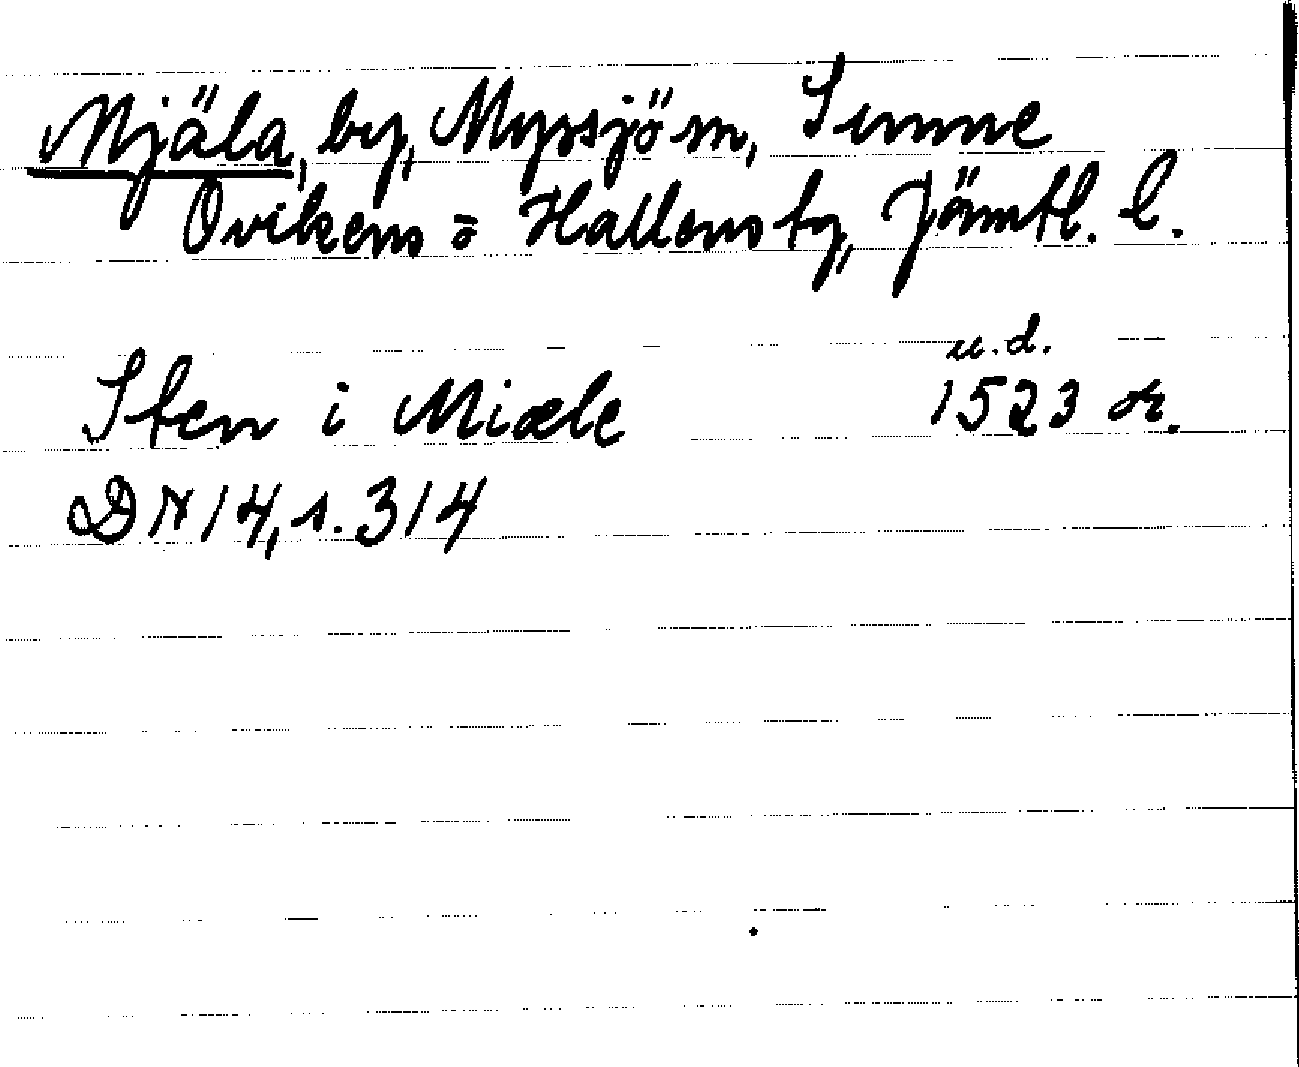 Mjäla, by, Myssjö sn, Sunne
Ovikens o Hallens tg, Jämtl. l.
u.d.
Sten i Miæle 1523 or.
DN 14, s. 314